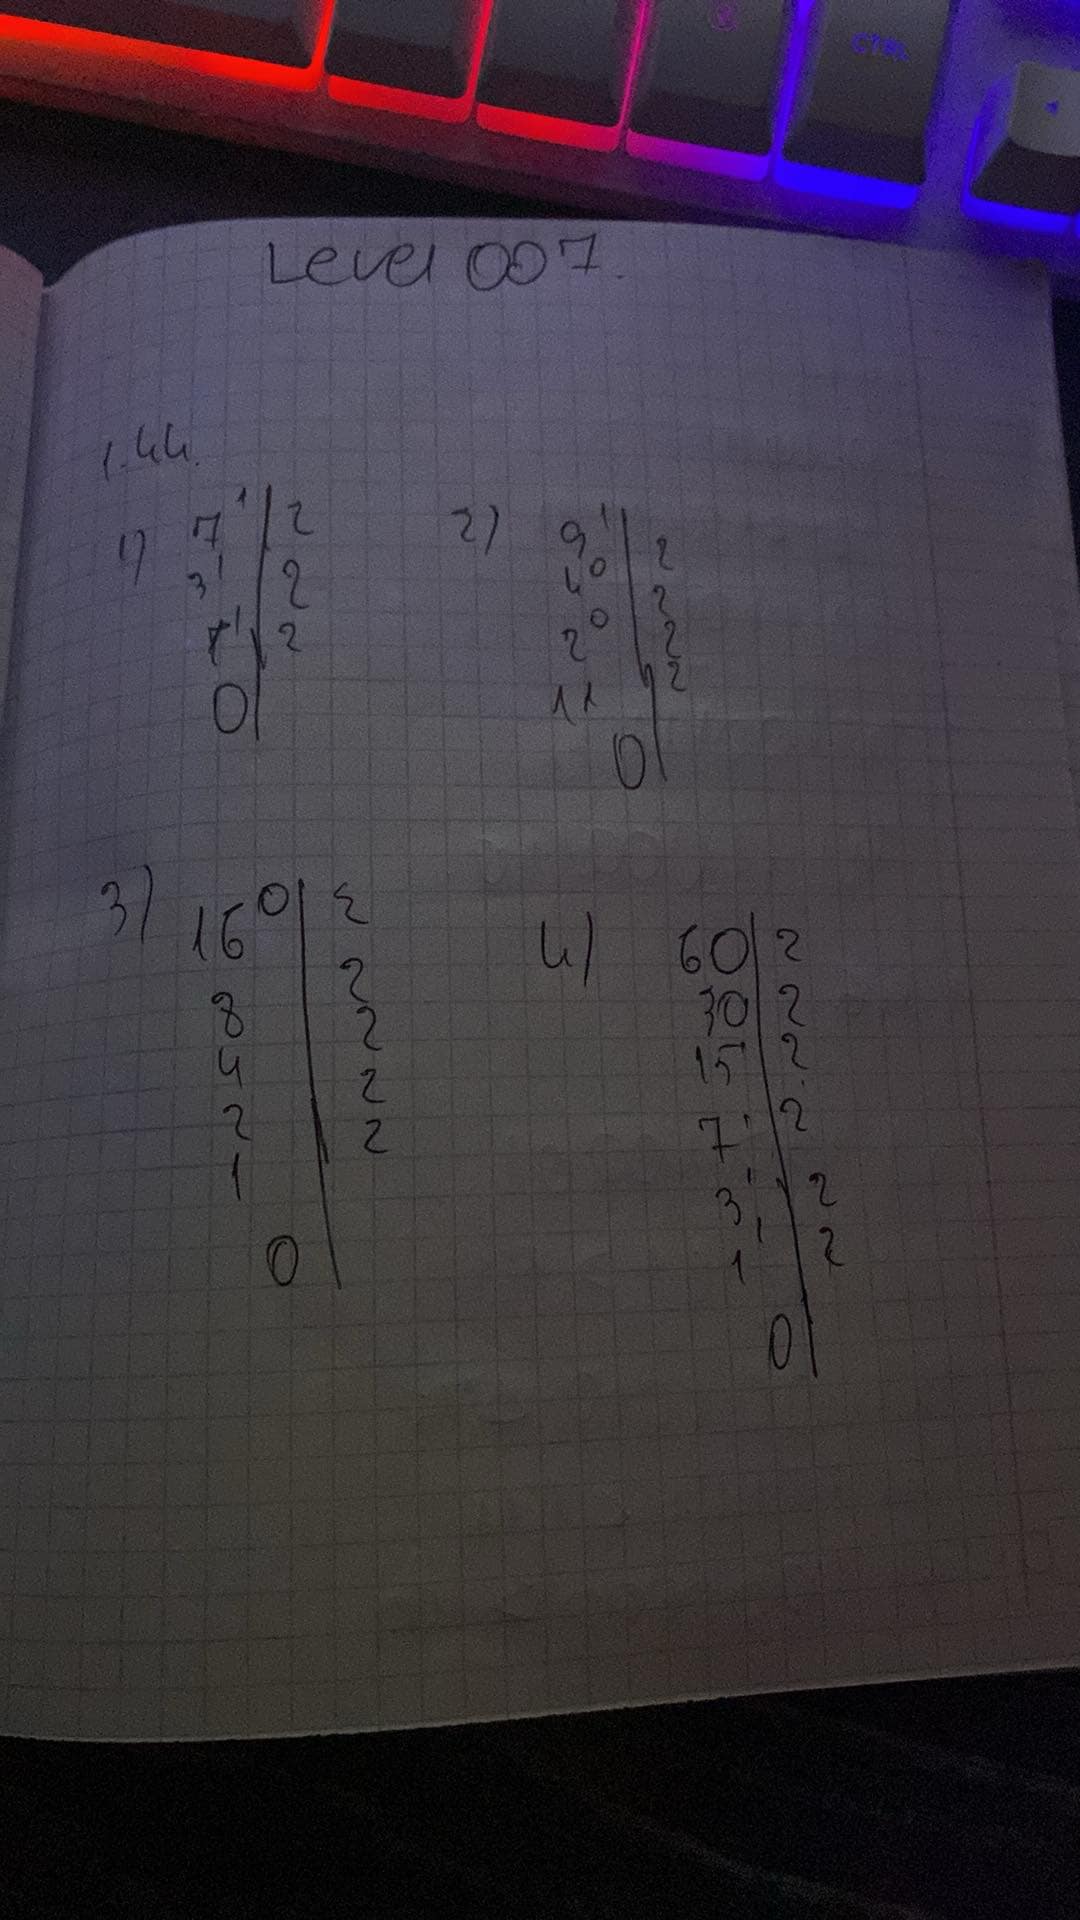 CTRL
Level 007.
1.44.
1) 7 1 | 2
3 1 | 2
1 1 | 2
0
2) 9 1 | 2
4 0 | 2
2 0 | 2
1 1 | 2
0
3) 16 0 | 2
8 | 2
4 | 2
2 | 2
1 | 2
0
4) 60 | 2
30 | 2
15 | 2
7 1 | 2
3 1 | 2
1 1 | 2
0